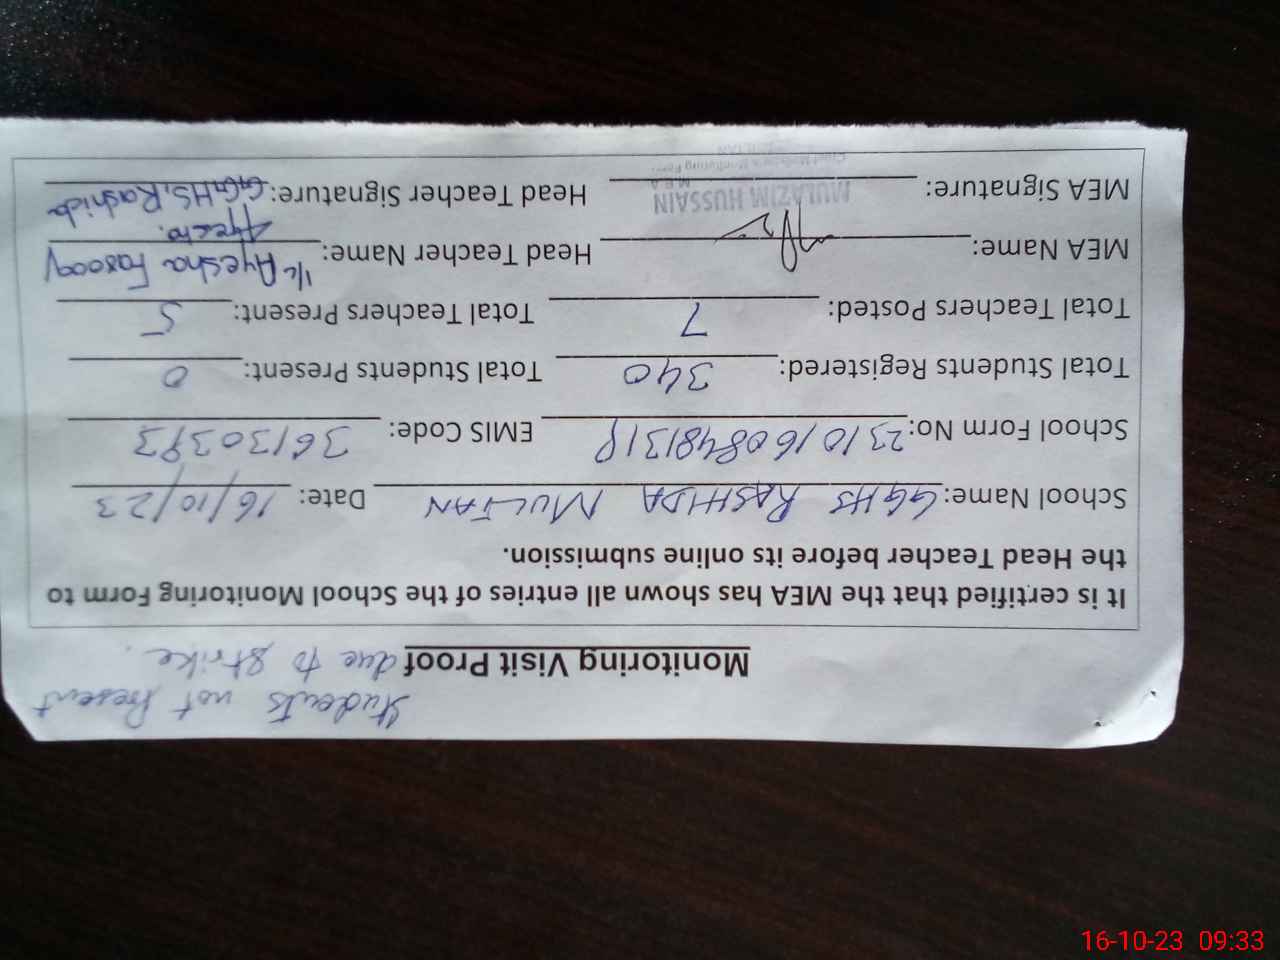 Students not Present
Monitoring Visit Proof due to Strike.
It is certified that the MEA has shown all entries of the School Monitoring Form to
the Head Teacher before its online submission.
School Name: GGHS RASHIDA MULTAN Date: 16/10/23
School Form No: EMIS Code: 36130393
Total Students Registered: 340 Total Students Present: 0
Total Teachers Posted: 7 Total Teachers Present: 5
MEA Name: Head Teacher Name: I/C Ayesha Farooq
MEA Signature: MULAZIM HUSSAIN Head Teacher Signature: GGHS, Rashida
M.E.A
16-10-23 09:33